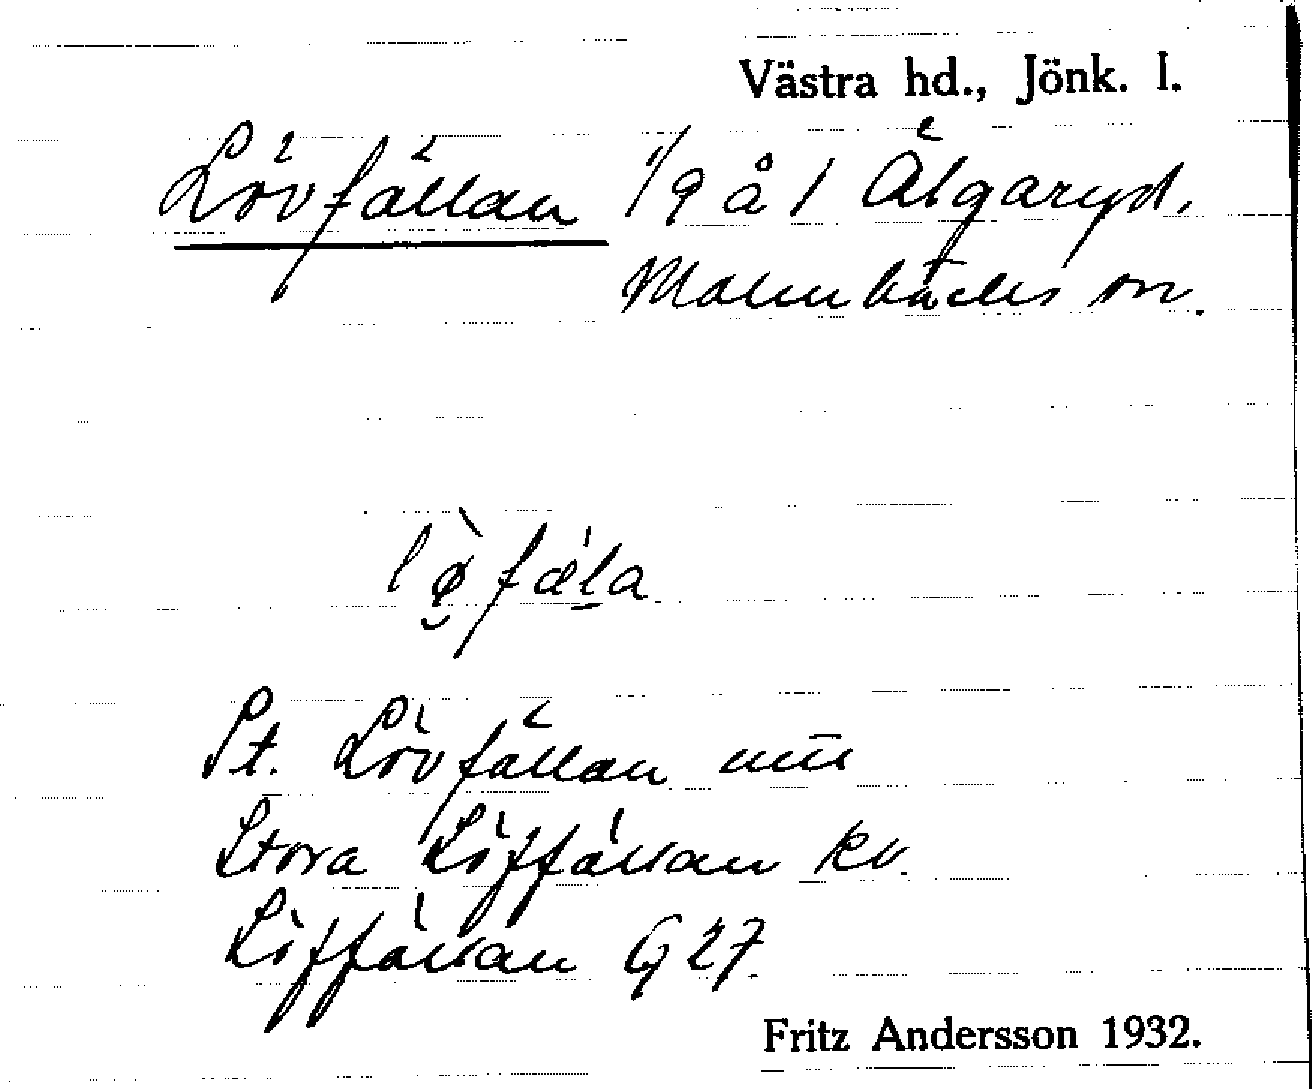 Västra hd., Jönk. l.
Lövfällan 1/9 å 1 Älgaryd,
Malmbäcks sn.
lø̀fæ̍la
St. Lövfällan
Stora Löffällan kv.
Löffällan G 27.
Fritz Andersson 1932.